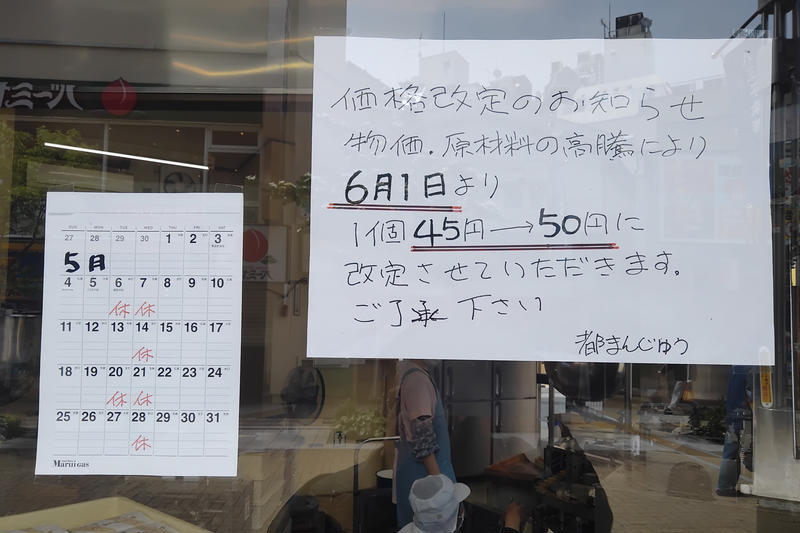 価格改定のお知らせ
物価.原材料の高騰により
6月1日より
1個45円→50円に
改定させていただきます。
ご了承下さい
都まんじゅう
SUN MON TUE WED THU FRI SAT
27 28 29 30 1 2 3
5月
4 5 6 7 8 9 10
休 休
11 12 13 14 15 16 17
休
18 19 20 21 22 23 24
休 休
25 26 27 28 29 30 31
休
Marui gas